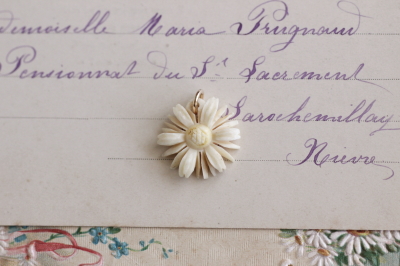 demoiselle Maria Prugnaud
Pensionnat du St Sacrement
Larochemillay
Nièvre